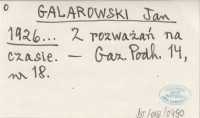 GALAROWSKI Jan
1926... Z rozważań na
czasie. — Gaz. Podh. 14,
nr 18.